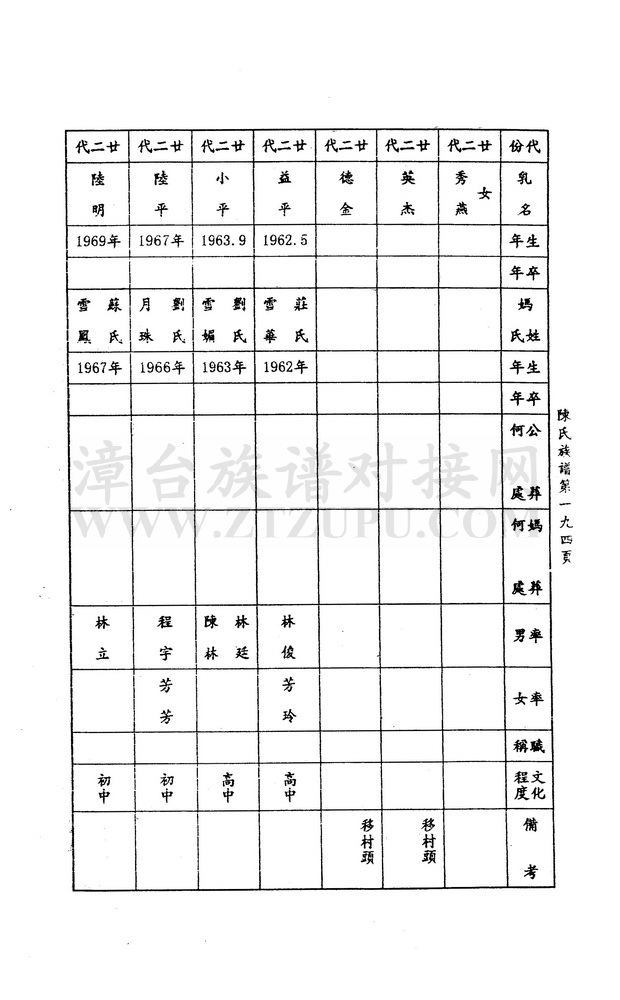 陳氏族譜第一九四頁
代份 廿二代 廿二代 廿二代 廿二代 廿二代 廿二代 廿二代
乳名 女秀燕 英杰 德金 益平 小平 陸平 陸明
生年 1962.5 1963.9 1967年 1969年
卒年
媽姓氏 莊氏雪華 劉氏雪媚 劉氏月珠 蘇氏雪鳳
生年 1962年 1963年 1966年 1967年
卒年
公葬何處
媽葬何處
率男 林俊 林廷 陳林 程宇 林立
率女 芳玲 芳芳
職稱
文化程度 高中 高中 初中 初中
備考 移村頭 移村頭
漳台族谱对接网
WWW.ZTZUPU.COM